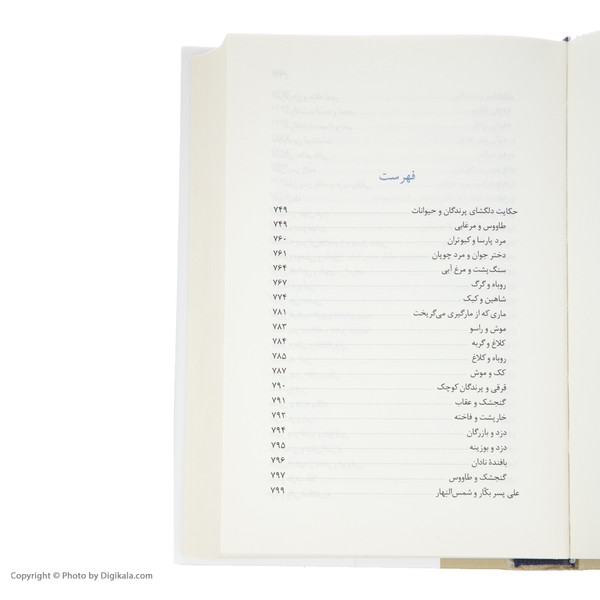 فهرست
حکایت دلگشای پرندگان و حیوانات ۷۴۹
طاووس و مرغابی ۷۴۹
مرد پارسا و کبوتران ۷۶۰
دختر جوان و مرد چوپان ۷۶۱
سنگ‌پشت و مرغ آبی ۷۶۴
روباه و گرگ ۷۶۷
شاهین و کبک ۷۷۴
ماری که از مارگیری می‌گریخت ۷۸۱
موش و راسو ۷۸۳
کلاغ و گربه ۷۸۴
روباه و کلاغ ۷۸۵
کک و موش ۷۸۷
قرقی و پرندگان کوچک ۷۹۰
گنجشک و عقاب ۷۹۱
خارپشت و فاخته ۷۹۲
دزد و بازرگان ۷۹۴
دزد و بوزینه ۷۹۵
بافندهٔ نادان ۷۹۶
گنجشک و طاووس ۷۹۷
علی پسر بکّار و شمس‌النهار ۷۹۹
Copyright © Photo by Digikala.com